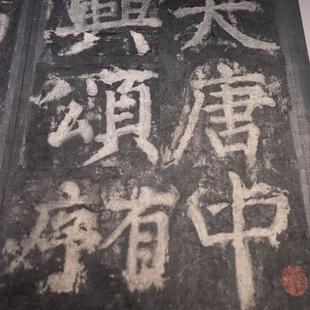 大唐中
興頌
有序